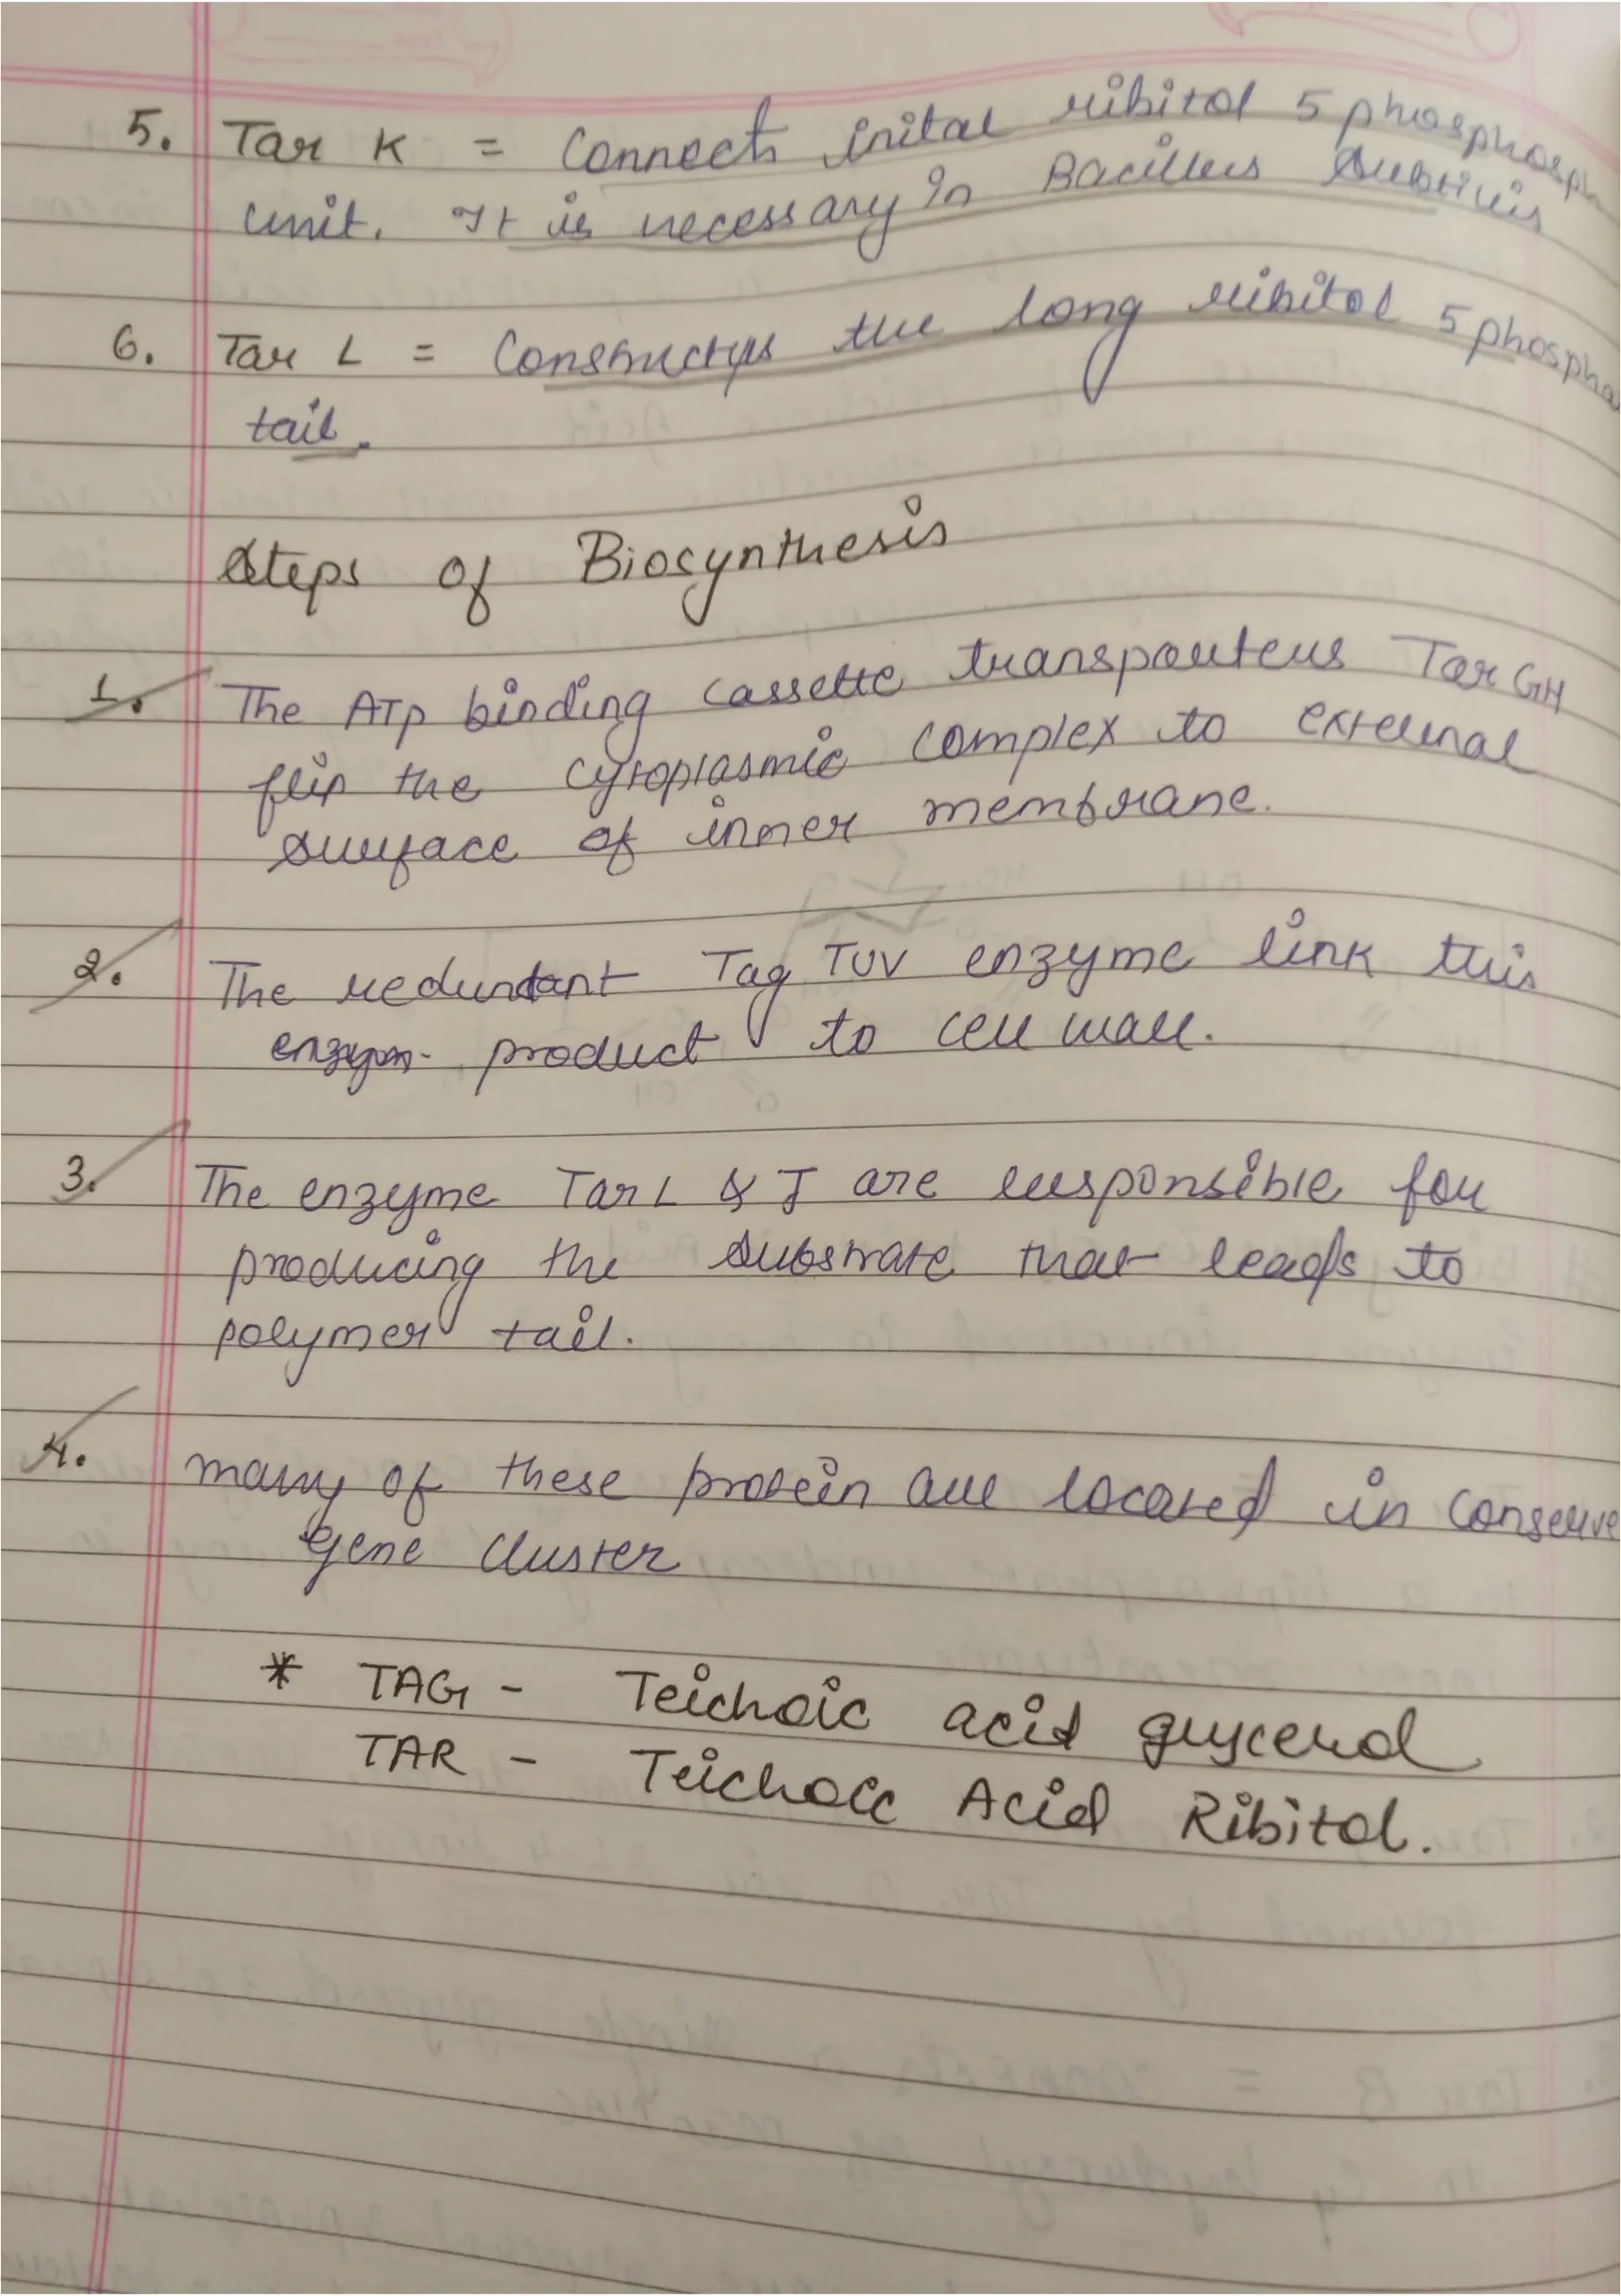 5. Tar K = Connects inital ribitol 5 phosphosph
unit. It is necessary in Bacillus Subtilis
6. Tar L = Constructs the long ribitol 5 phospha
tail.
Steps of Biosynthesis
1. The ATP binding cassette transporters Tar GH
flip the cytoplasmic complex to external
surface of inner membrane.
2. The redundant Tag TUV enzyme link this
product to cell wall.
3. The enzyme Tar L & J are responsible for
producing the substrate that leads to
polymer tail.
4. many of these protein are located in conserve
gene cluster
* TAG - Teichoic acid glycerol
TAR - Teichoic Acid Ribitol.